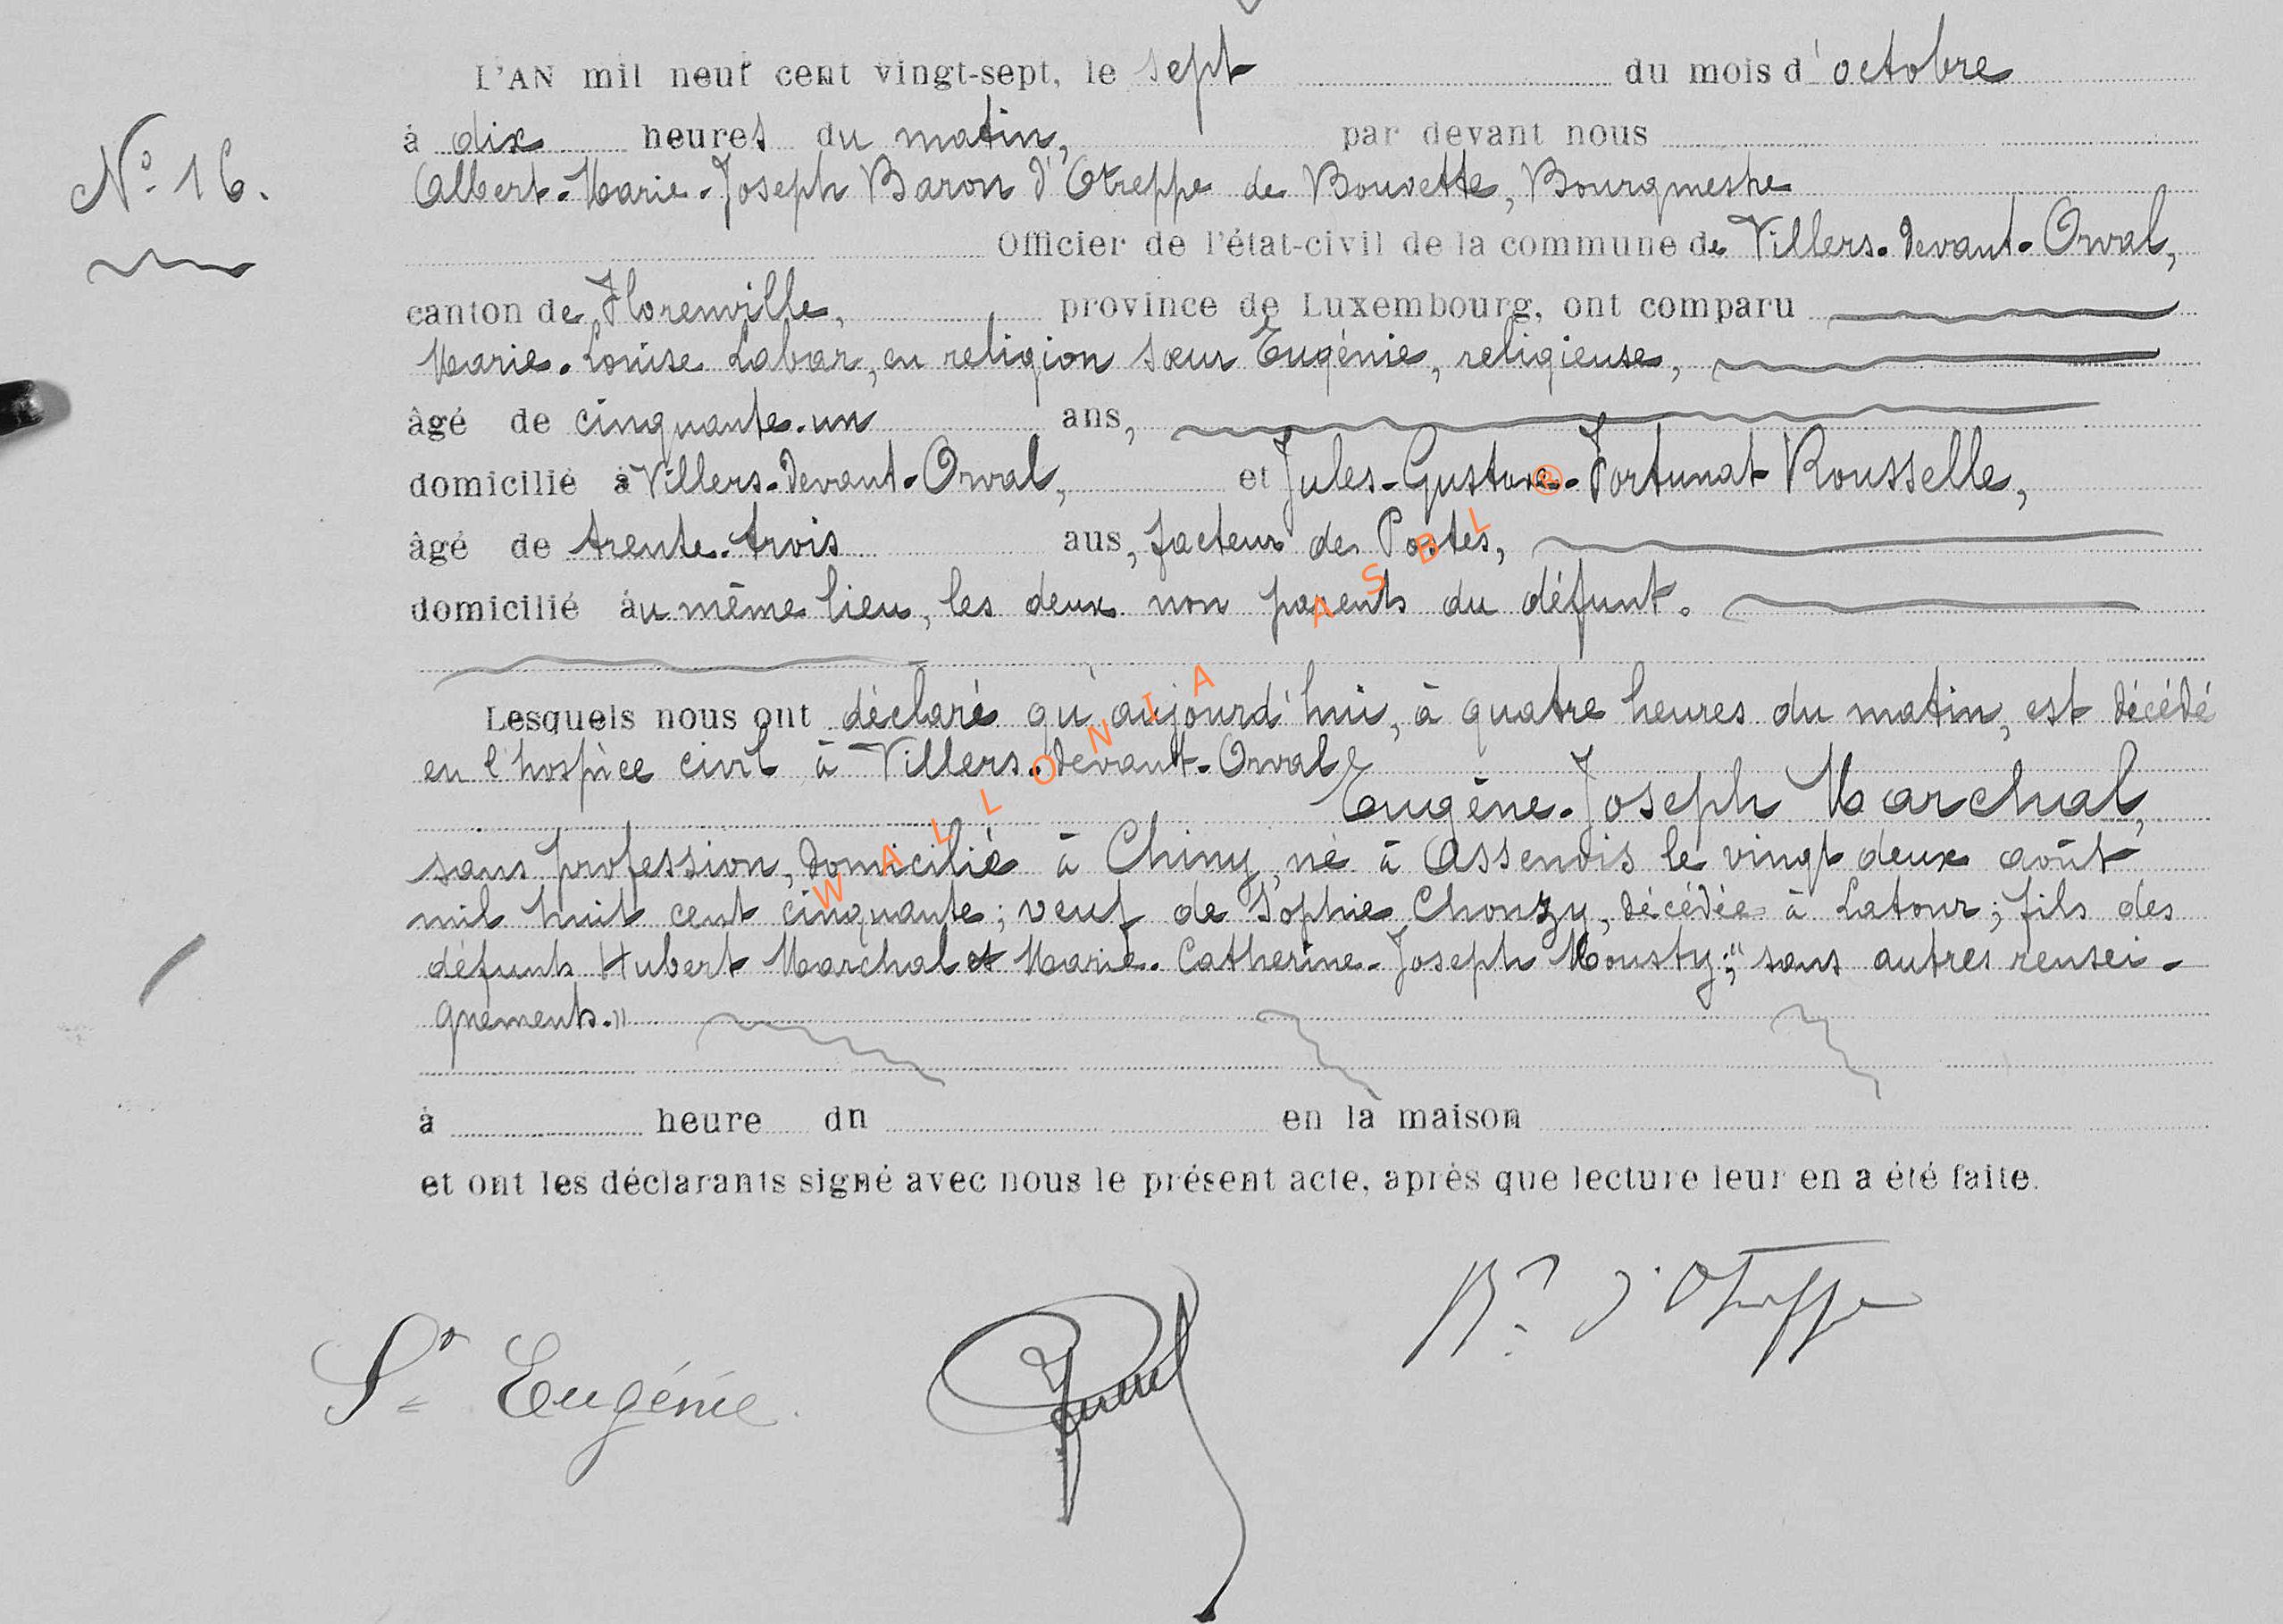 L'AN mil neuf cent vingt-sept, le sept du mois d'octobre
à dix heures du matin, par devant nous
N° 16.
Albert-Marie-Joseph Baron d'Otreppe de Bouvette, Bourgmestre
Officier de l'état-civil de la commune de Villers-devant-Orval,
canton de Florenville, province de Luxembourg, ont comparu
Marie-Louise Labar, en religion sœur Eugénie, religieuse,
âgé de cinquante-un ans,
domicilié à Villers-devant-Orval, et Jules-Gustave-Fortunat Rousselle,
âgé de trente-trois ans, facteur des Postes,
domicilié au même lieu, les deux non parents du défunt.
Lesquels nous ont déclaré qu'aujourd'hui, à quatre heures du matin, est décédé
en l'hospice civil à Villers-devant-Orval
Eugène-Joseph Marchal,
sans profession, domicilié à Chiny, né à Assenois le vingt deux août
mil huit cent cinquante; veuf de Sophie Chonzy, décédée à Latour; fils des
défunts Hubert Marchal et Marie-Catherine-Joseph Mousty; "sans autres rensei-
gnements."
à heure du en la maison
et ont les déclarants signé avec nous le présent acte, après que lecture leur en a été faite.
Sr Eugénie.
Bn d'Otreppe
WALLONIA ASBL ®